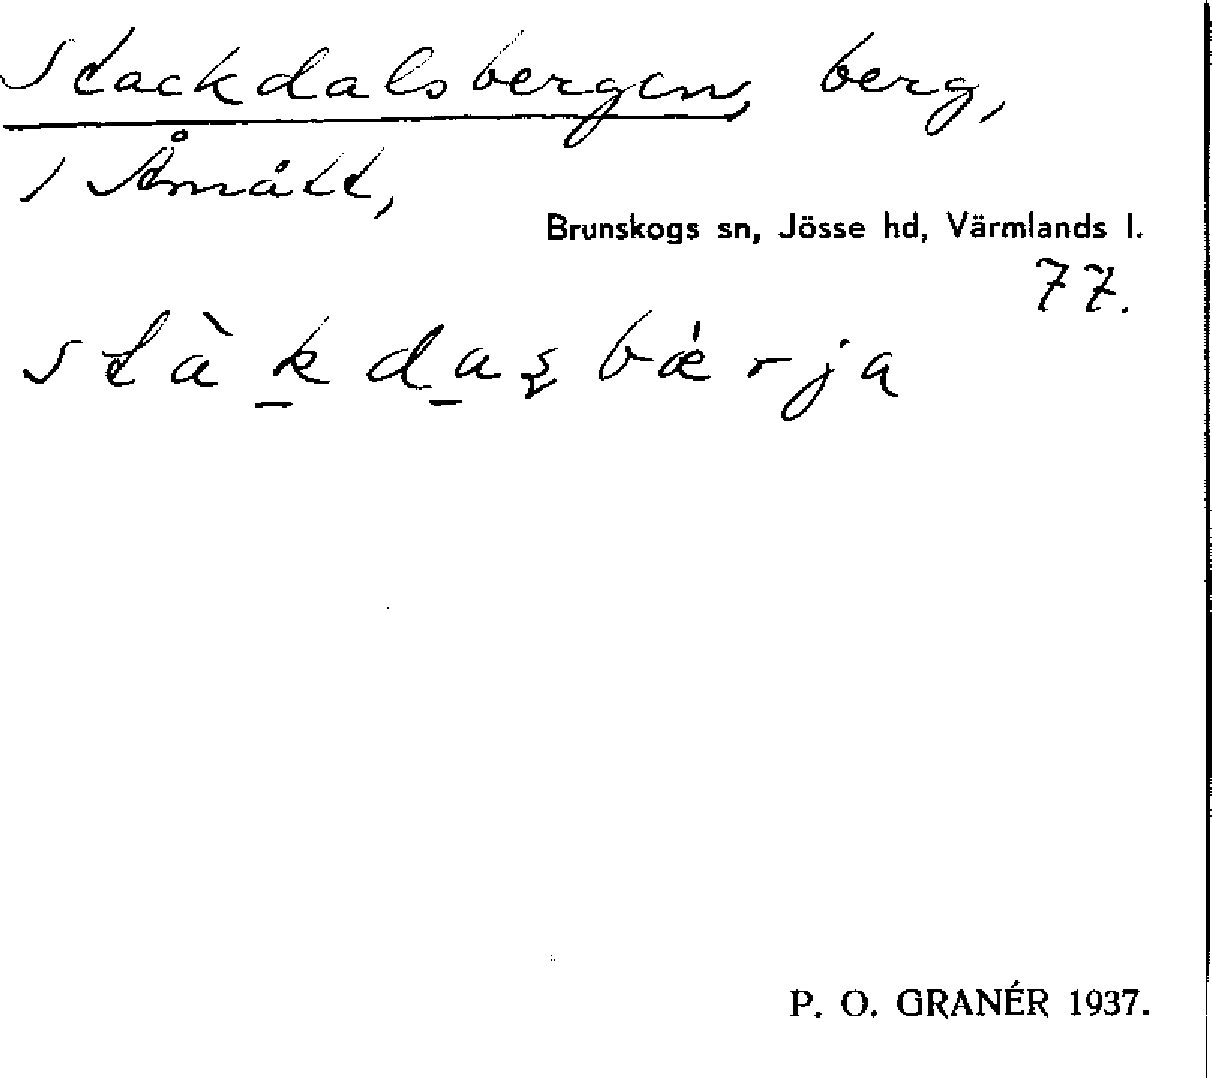 Stackdalsbergen, berg,
i Åmått,
Brunskogs sn, Jösse hd, Värmlands l.
77.
P. O. GRANÉR 1937.